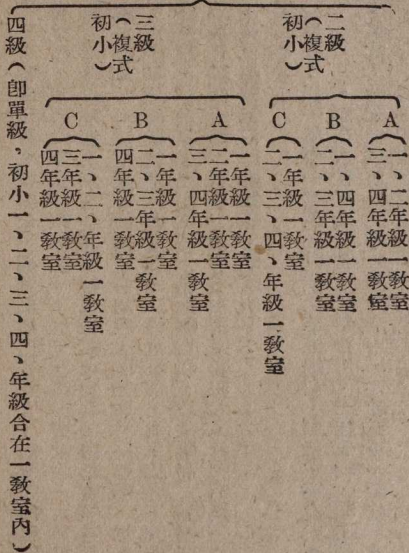 二級
（複式
初小）
A
一、二年級一敎室
三、四年級一敎室
B
一、四年級一敎室
二、三年級一敎室
C
一年級一敎室
二、三、四、年級一敎室
三級
（複式
初小）
A
一年級一敎室
二年級一敎室
三、四年級一敎室
B
一年級一敎室
二、三年級一敎室
四年級一敎室
C
一、二、年級一敎室
三年級一敎室
四年級一敎室
四級（卽單級，初小一、二、三、四、年級合在一敎室內）